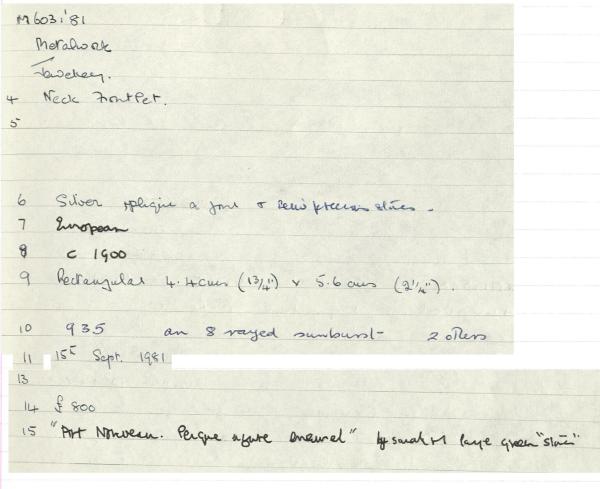 M603:'81
Metalwork
Jewellery.
4 Neck Front Pet.
5
6 Silver plique a jour & semi precious stones.
7 European
8 c 1900
9 Rectangular 4.4cms (1 3/4") x 5.6 cms (2 1/4").
10 935 an 8 rayed sunburst- 2 others
11 15th Sept. 1981
13
14 £800
15 "Art Nouveau. Plique a jure enamel" by small & large green "stones"